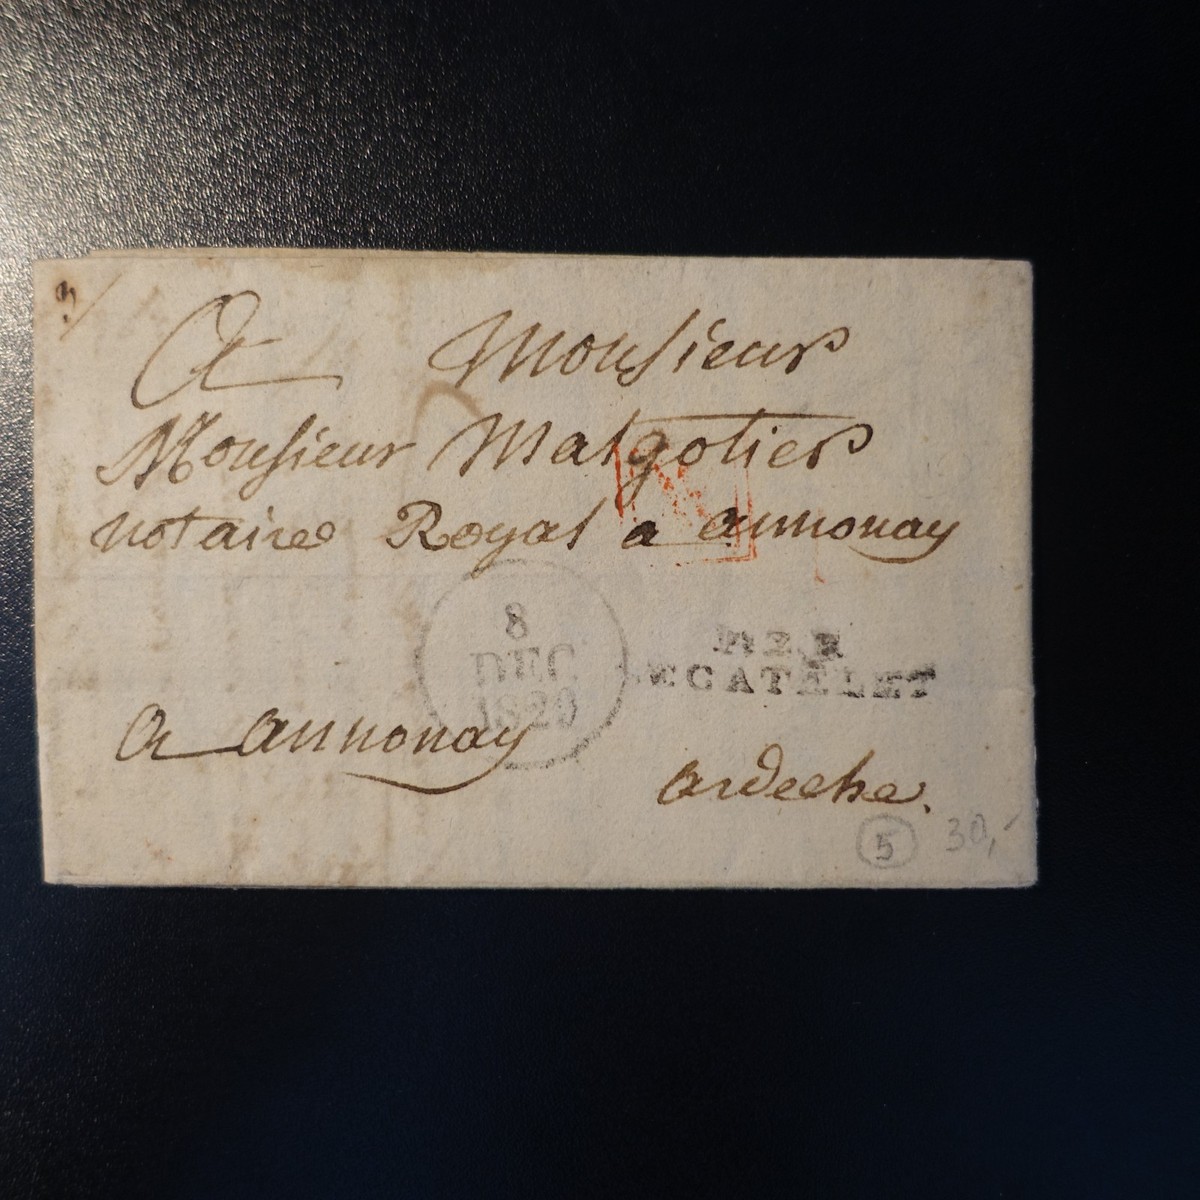 3/
A Monsieur
Monsieur Malgotier
notaire Royal a annonay
8
DEC
1820
P.2.P
LECATELET
A annonay
ardeche.
5 30,-